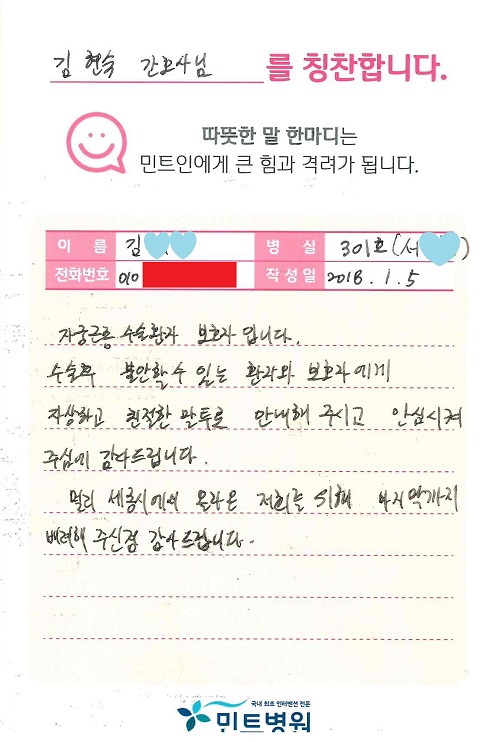 김 현숙 간호사님 를 칭찬합니다.
따뜻한 말 한마디는
민트인에게 큰 힘과 격려가 됩니다.
이 름 김 병 실 301호(서 )
전화번호 010 작성일 2018. 1. 5
자궁근종 수술환자 보호자 입니다.
수술후 불안할 수 있는 환자와 보호자에게
자상하고 친절한 말투로 안내해 주시고 안심시켜
주심에 감사드립니다.
멀리 세종시에서 올라온 저희를 위해 마지막까지
배려해 주신점 감사드립니다.
국내 최초 인터벤션 전문
민트병원